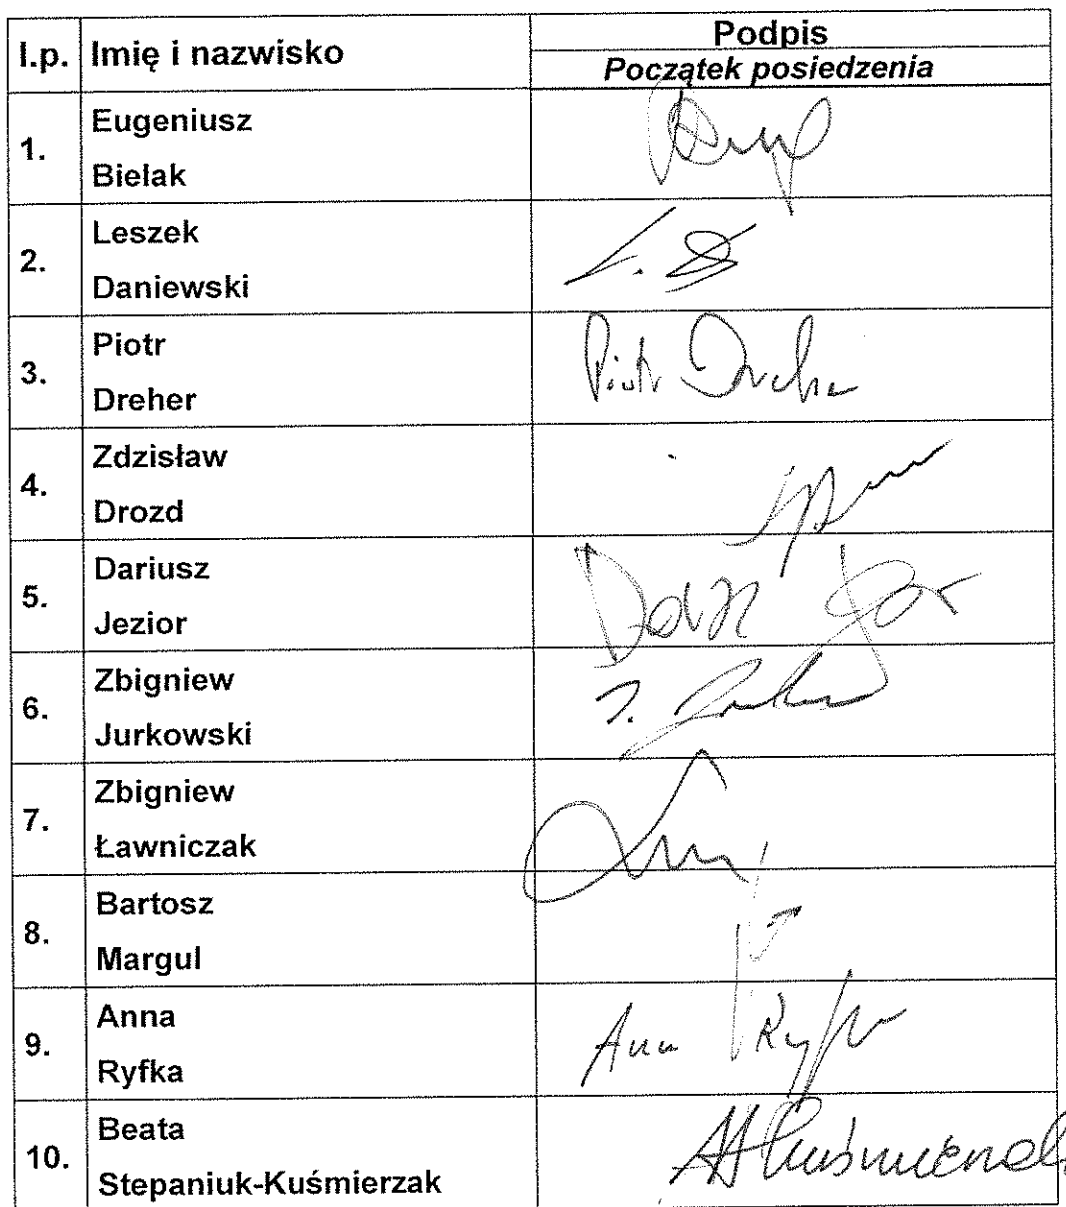 l.p. Imię i nazwisko Podpis
Początek posiedzenia
1. Eugeniusz
Bielak
2. Leszek
Daniewski
3. Piotr
Dreher
Piotr Dreher
4. Zdzisław
Drozd
5. Dariusz
Jezior
6. Zbigniew
Jurkowski
7. Zbigniew
Ławniczak
8. Bartosz
Margul
9. Anna
Ryfka
Anna Ryfka
10. Beata
Stepaniuk-Kuśmierzak